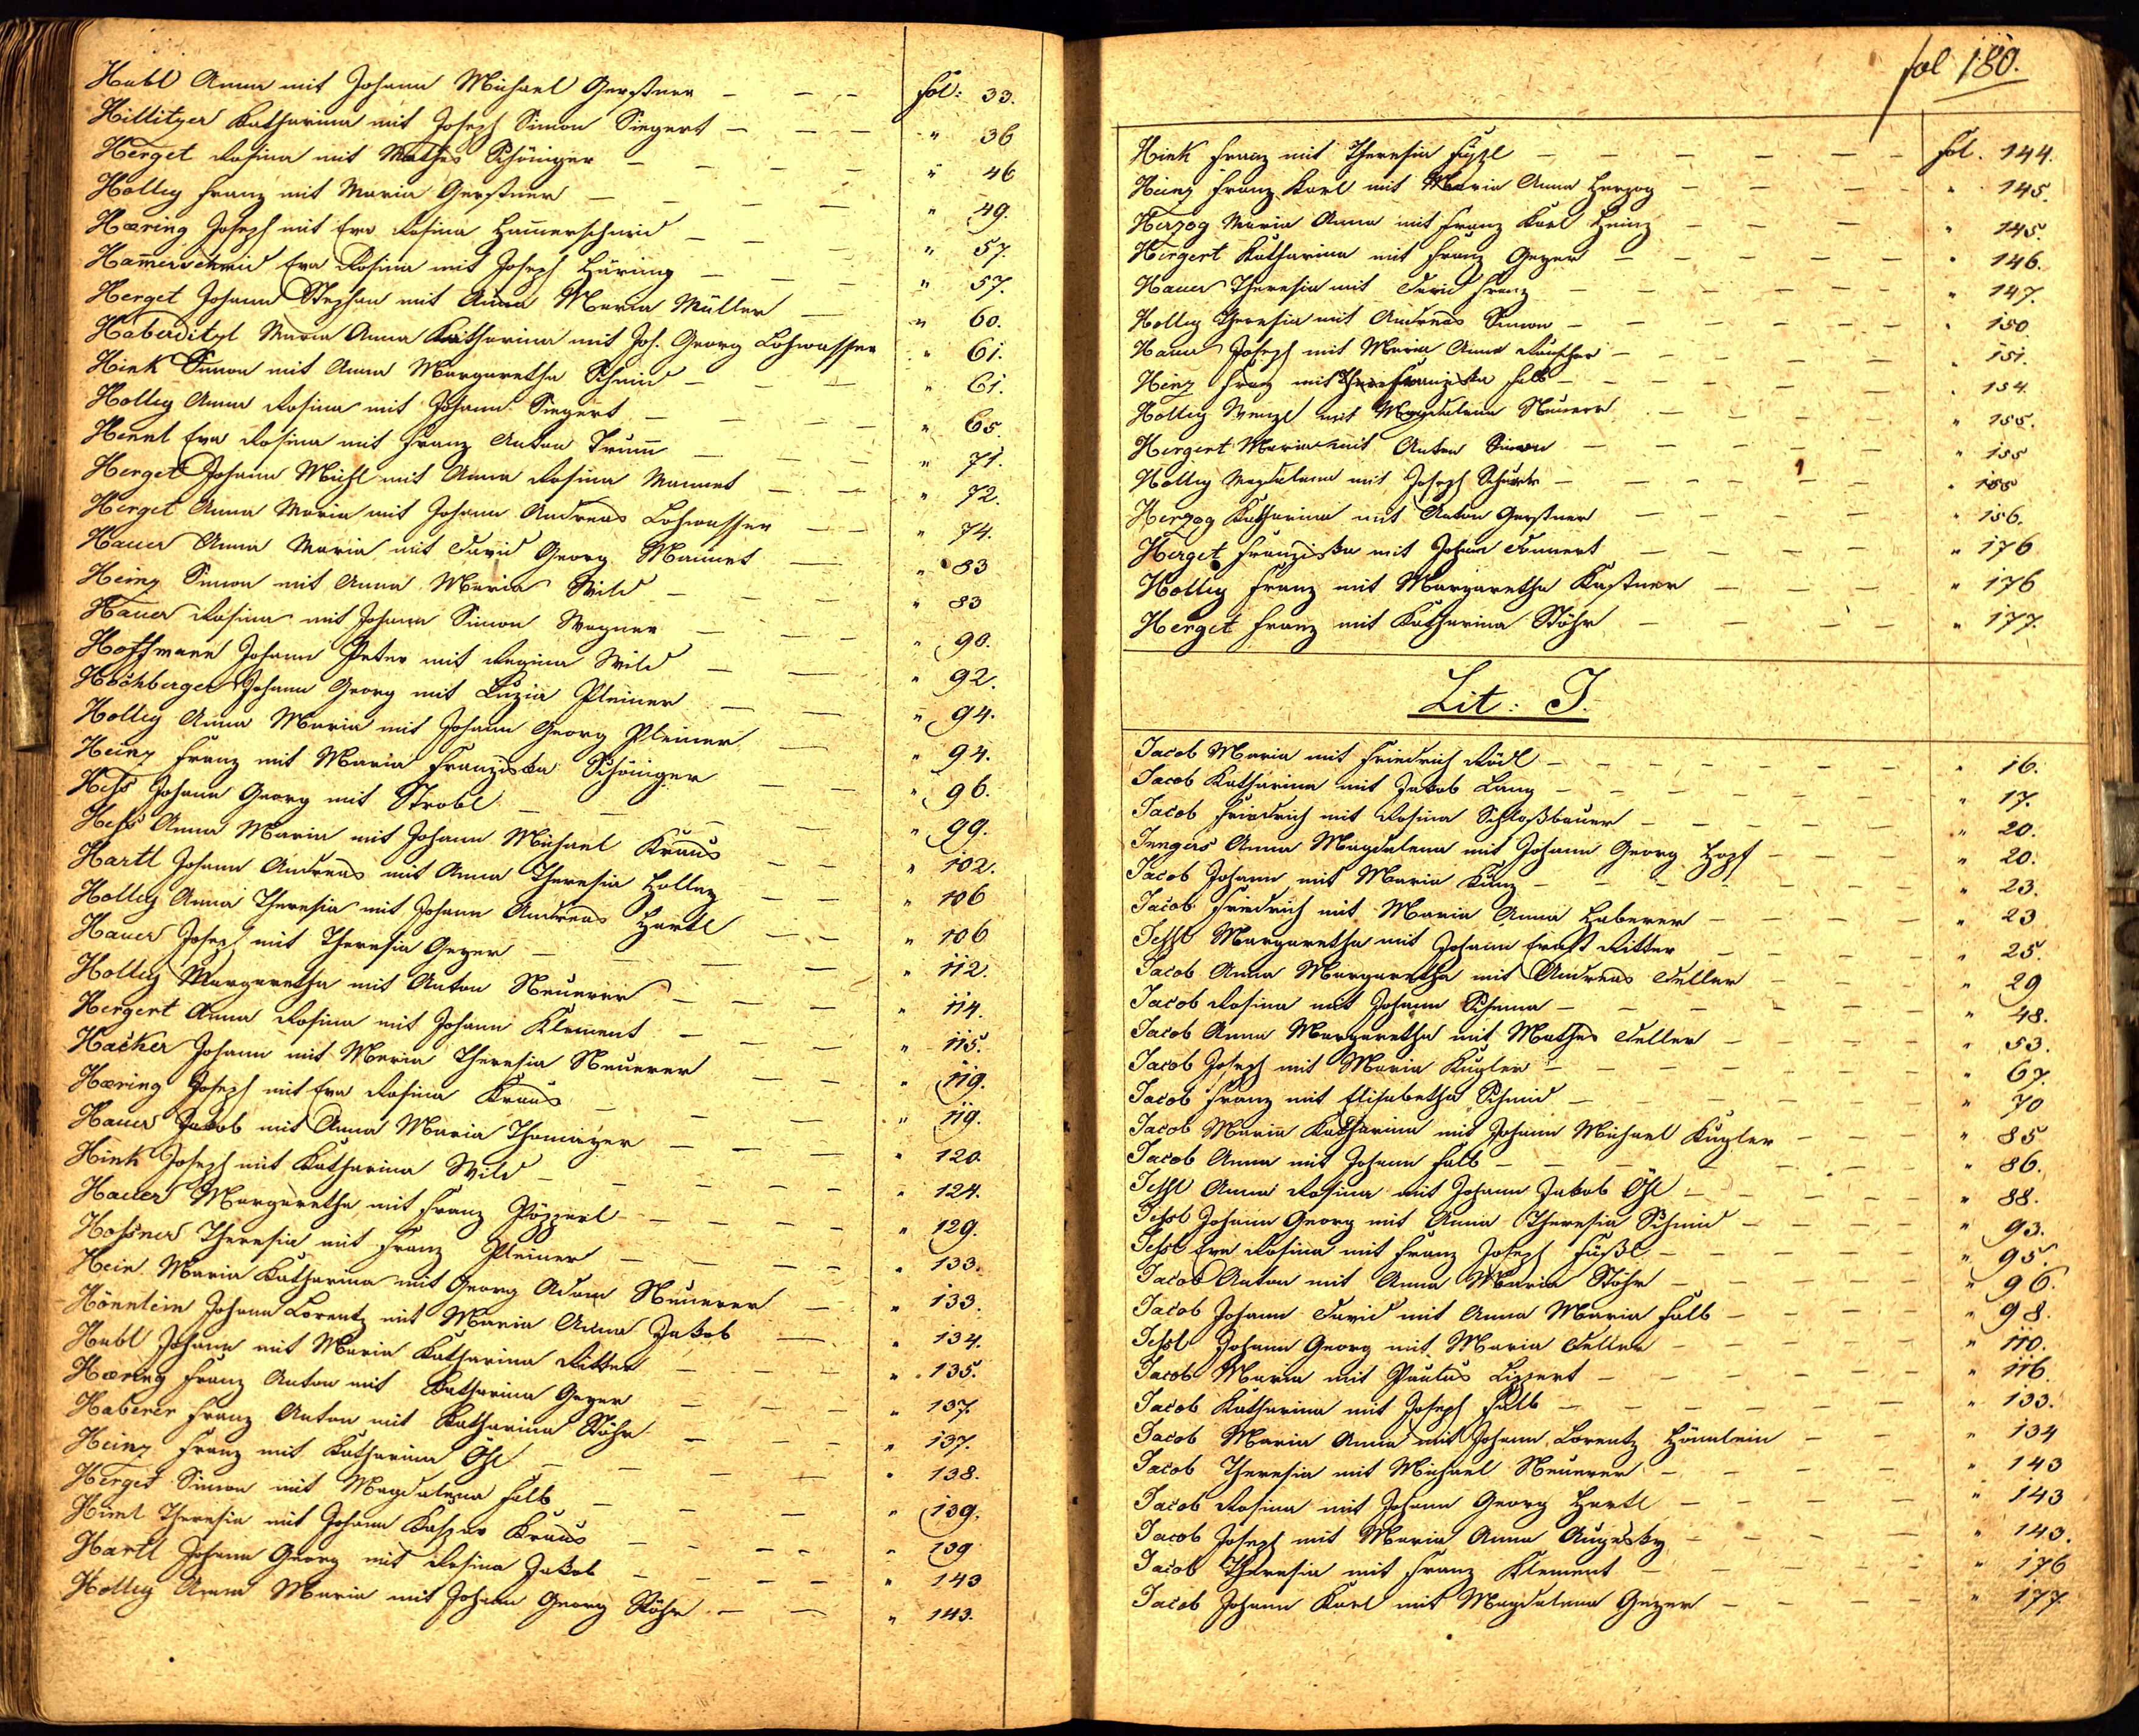 Hubl Anna mit Johann Michael Gerstner — — — fol: 33.
Hillitzer Katharina mit Joseph Simon Siegert — — — " 36
Herget Rosina mit Mathes Schöniger — — — " 46
Holley Franz mit Maria Gerstner — — — " 49.
Hæring Joseph mit Eva Rosina Ham̅erschmid — — — " 57.
Ham̅erschmid Eva Rosina mit Joseph Häring — — — " 57.
Herget Johann Stephan mit Anna Maria Müller — " 60.
Haberditzl Maria Anna Katharina mit Joh. Georg Lohwasser " 61.
Hink Simon mit Anna Margaretha Schmid — — — " 61.
Holley Anna Rosina mit Johann Siegert — — — " 65.
Hennl Eva Rosina mit Franz Anton Trum̅ — — — " 71.
Herget Johann Michl mit Anna Rosina Mannet — — " 72.
Herget Anna Maria mit Johann Andreas Lohwasser — — " 74.
Hauer Anna Maria mit David Georg Mannet — — " 83
Heinz Simon mit Anna Maria Wild — — — " 83
Hauer Rosina mit Johann Simon Wagner — — — " 90.
Hoffmann Johann Peter mit Regina Wild — — — " 92.
Hochberger Johann Georg mit Luzia Pleiner — — " 94.
Holley Anna Maria mit Johann Georg Pleiner — — " 94.
Heinz Franz mit Maria Franziska Schöniger — — " 96.
Hess Johann Georg mit Strobl — — — " 99.
Hess Anna Maria mit Johann Michael Kraus — — " 102.
Hartl Johann Andreas mit Anna Theresia Holley — — " 106
Holley Anna Theresia mit Johann Andreas Hartl — — " 106
Hauer Joseph mit Theresia Geyer — — — " 112.
Holley Margaretha mit Anton Neuerer — — — " 114.
Hergert Anna Rosina mit Johann Klement — — — " 115.
Hacker Johann mit Maria Theresia Neuerer — — " 119.
Hæring Joseph mit Eva Rosina Kraus — — — " 119.
Hauer Jakob mit Anna Maria Thomayer — — — " 120.
Hink Joseph mit Katharina Wild — — — " 124.
Hauer Margaretha mit Franz Pöpperl — — — " 129.
Hossner Theresia mit Franz Pleiner — — — " 133.
Hein Maria Katharina mit Georg Adam Neuerer — " 133.
Hönnlein Johann Lorentz mit Maria Anna Jakob — " 134.
Hubl Johann mit Maria Katharina Ritter — — — " 135.
Hæring Franz Anton mit Katharina Geyer — — — " 137.
Haberer Franz Anton mit Katharina Stöhr — — — " 137.
Heinz Franz mit Katharina Öhl — — — " 138.
Herget Simon mit Magdalena Falb — — — " 139.
Himl Theresia mit Johann Kaspar Kraus — — — " 139
Hartl Johann Georg mit Rosina Jakob — — — " 143
Holley Anna Maria mit Johann Georg Stöhr — — " 143.
fol 180.
Hink Franz mit Theresia Füßl — — — fol. 144.
Heinz Franz Karl mit Maria Anna Herzog — — — " 145.
Herzog Maria Anna mit Franz Karl Heinz — — — " 145.
Hergert Katharina mit Franz Geyer — — — " 146.
Hauer Theresia mit David Franz — — — " 147.
Holley Theresia mit Andreas Simon — — — " 150
Hauer Joseph mit Maria Anna — — — " 151.
Heinz Franz mit Franziska Falb — — — " 154.
Holley Wenzl mit Magdalena Neuerer — — — " 155.
Hergert Maria mit Anton Simon — — — " 155
Holley Magdalena mit Joseph — — — " 155
Herzog Katharina mit Anton Gerstner — — — " 156.
Herget Franziska mit Johann — — — " 176
Holley Franz mit Margaretha Kastner — — — " 176
Herget Franz mit Katharina Stöhr — — — " 177.
Lit: J.
Jacob Maria mit Friedrich Rödl — — — " 16.
Jacob Katharina mit Jakob Lang — — — " 17.
Jacob Friedrich mit Rosina Schloßbauer — — — " 20.
Jengers Anna Magdalena mit Johann Georg Hopf — — — " 20.
Jacob Johann mit Maria Kunz — — — " 23.
Jacob Friedrich mit Maria Anna Haberer — — — " 23
Jessl Margaretha mit Johann Ernst Ritter — — — " 25.
Jacob Anna Margaretha mit Andreas Feller — — — " 29
Jacob Rosina mit Johann — — — " 48.
Jacob Anna Margaretha mit Mathes Feller — — — " 53.
Jacob Joseph mit Maria Kugler — — — " 67.
Jacob Franz mit Elisabetha Schmid — — — " 70
Jacob Maria Katharina mit Johann Michael Kugler — — — " 85
Jacob Anna mit Johann Falb — — — " 86.
Jessl Anna Rosina mit Johann Jakob Öhl — — — " 88.
Jessl Johann Georg mit Anna Theresia Schmid — — — " 93.
Jessl Eva Rosina mit Franz Joseph Füßl — — — " 95.
Jacob Anton mit Anna Maria Stöhr — — — " 96.
Jacob Johann David mit Anna Maria Falb — — — " 98.
Jessl Johann Georg mit Maria Feller — — — " 110.
Jacob Maria mit Paulus Lippert — — — " 116.
Jacob Katharina mit Joseph Falb — — — " 133.
Jacob Maria Anna mit Johann Lorentz Hönnlein — — " 134
Jacob Theresia mit Michael Neuerer — — — " 143
Jacob Rosina mit Johann Georg Hartl — — — " 143
Jacob Joseph mit Maria Anna Augesky — — — " 143.
Jacob Theresia mit Franz Klement — — — " 176
Jacob Johann Karl mit Magdalena Geyer — — — " 177